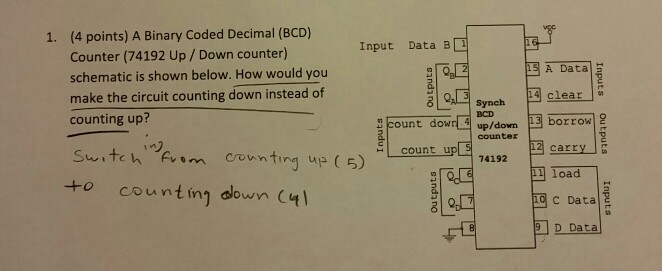 1. (4 points) A Binary Coded Decimal (BCD)
Counter (74192 Up / Down counter)
schematic is shown below. How would you
make the circuit counting down instead of
counting up?
Switching from counting up (5)
to counting down (4)
Input Data B 1
Outputs
QB 2
QA 3
Inputs
count down 4
count up 5
Outputs
QC 6
QD 7
8
Synch
BCD
up/down
counter
74192
vcc
16
15 A Data
14 clear
Inputs
13 borrow
12 carry
Outputs
11 load
10 C Data
9 D Data
Inputs